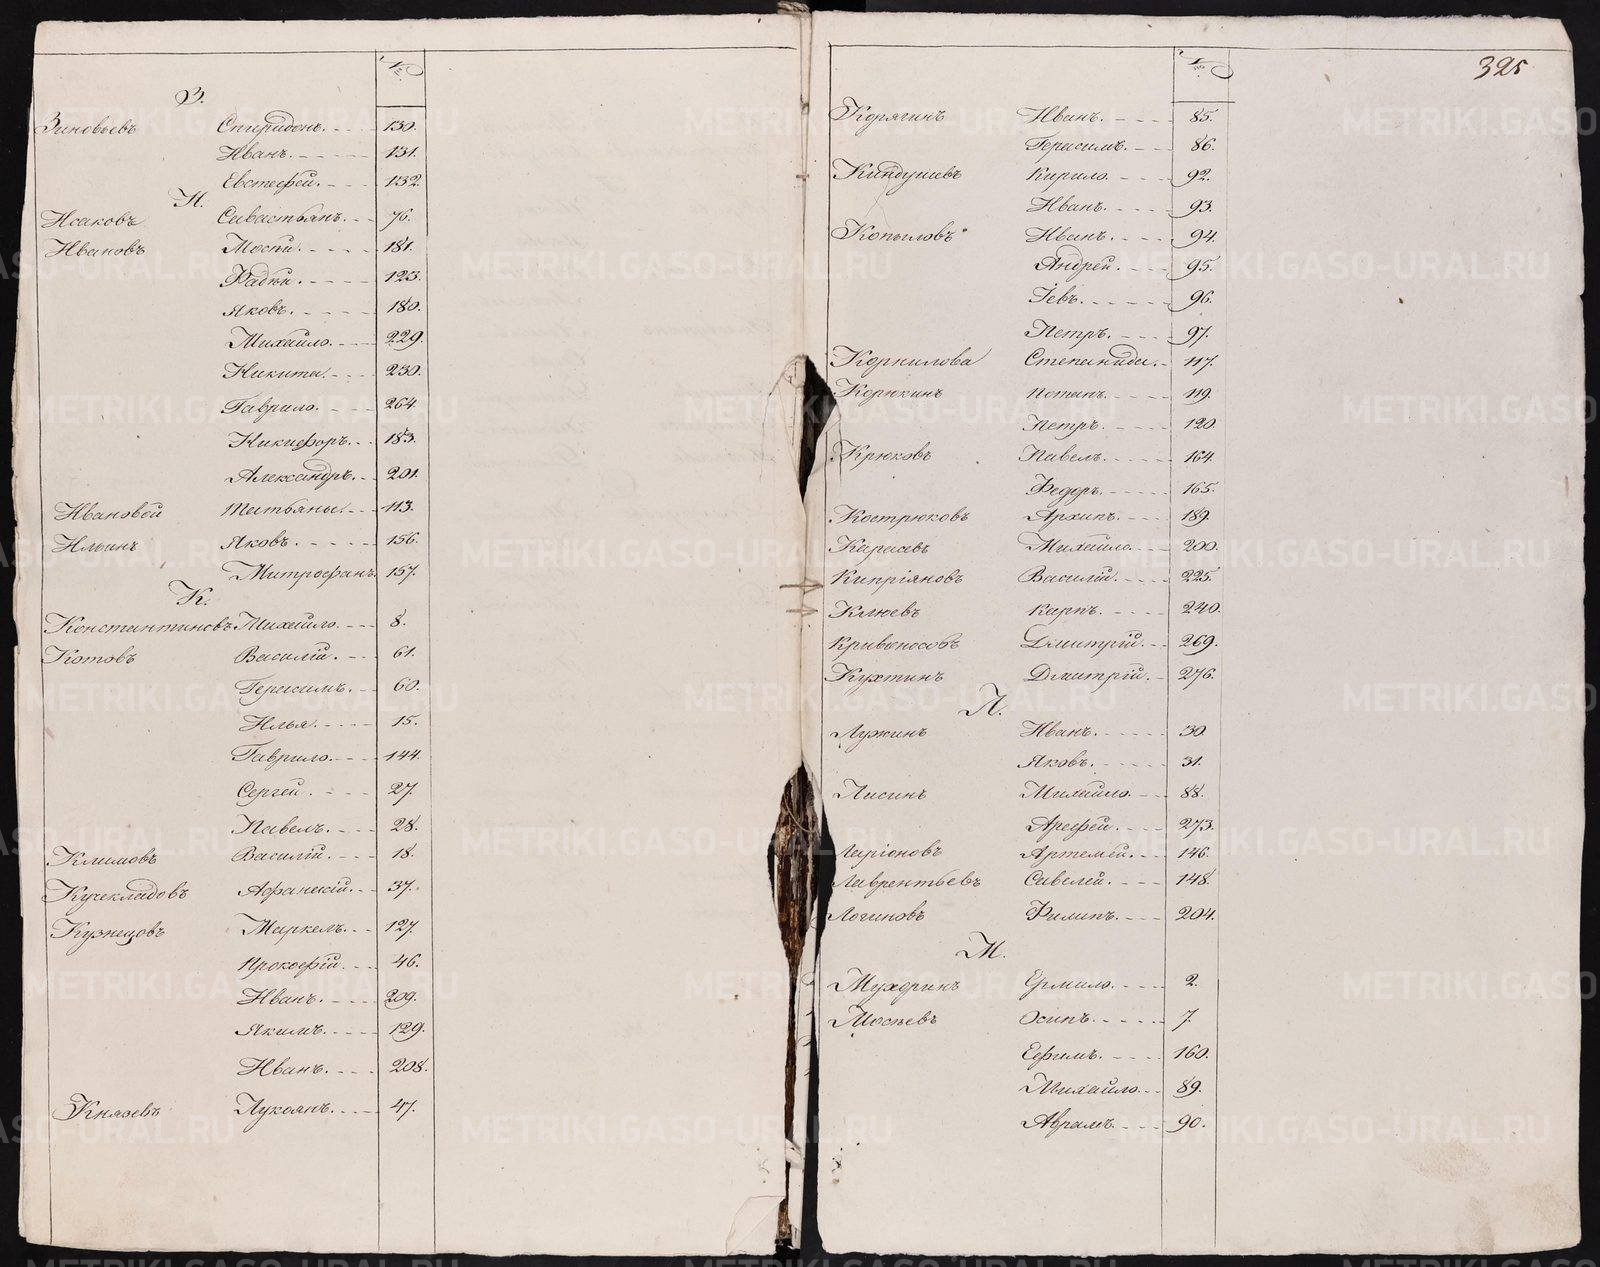 №
З.
Зиновьевъ Спиридонъ. 130.
Иванъ. 131.
Евстефей. 132.
И.
Исаковъ Савастьянъ. 76.
Ивановъ Мосей. 181.
Фадѣй. 123.
Яковъ. 180.
Михайло. 229.
Никита. 230.
Гаврило. 264.
Никифоръ. 183.
Александръ. 201.
Ивановой Татьяны. 113.
Ильинъ Яковъ. 156.
Митрофанъ. 157.
К.
Константиновъ Михайло. 8.
Котовъ Василій. 61.
Герасимъ. 60.
Илья. 15.
Гаврило. 144.
Сергей. 27.
Павелъ. 28.
Климовъ Василій. 18.
Кучекладовъ Афанасій. 37.
Кузнецовъ Маркелъ. 127.
Прокофій. 46.
Иванъ. 209.
Якимъ. 129.
Иванъ. 208.
Князевъ Лукоянъ. 47.
№
325
Корягинъ Иванъ. 85.
Герасимъ. 86.
Киндушевъ Кирило. 92.
Иванъ. 93.
Копыловъ Иванъ. 94.
Андрей. 95.
Іевъ. 96.
Петръ. 97.
Корнилова Степанида. 117.
Корюкинъ Потапъ. 119.
Петръ. 120.
Крюковъ Павелъ. 164.
Федоръ. 165.
Кострюковъ Архипъ. 189.
Михайло. 200.
Кипріяновъ Василій. 225.
Клюевъ Карпъ. 240.
Кривоносовъ Дмитрій. 269.
Кухтинъ Дмитрій. 276.
Л.
Лужинъ Иванъ. 30
Яковъ. 31.
Лисинъ Михайло. 88.
Арефей. 273.
Ларіоновъ Артемій. 146.
Лаврентьевъ Савелей. 148.
Логиновъ Филипъ. 204.
М.
Мухоринъ Ермило. 2.
Мосѣевъ Осипъ. 7.
Ефимъ. 160.
Михайло. 89.
Аврамъ. 90.
METRIKI.GASO-URAL.RU